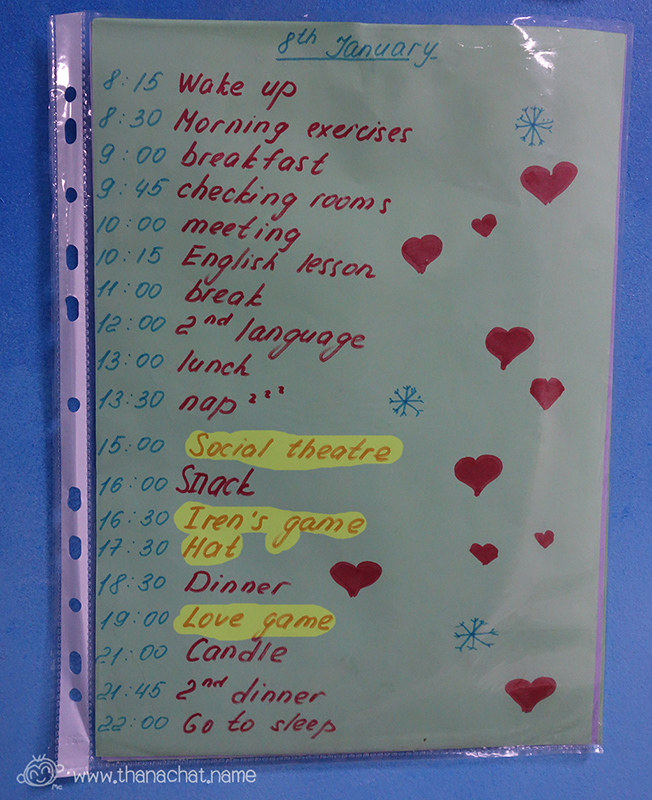 8th January
8:15 Wake up
8:30 Morning exercises
9:00 breakfast
9:45 checking rooms
10:00 meeting
10:15 English lesson
11:00 break
12:00 2nd language
13:00 lunch
13:30 nap zzz
15:00 Social theatre
16:00 Snack
16:30 Iren's game
17:30 Hat
18:30 Dinner
19:00 Love game
21:00 Candle
21:45 2nd dinner
22:00 Go to sleep
www.thanachat.name